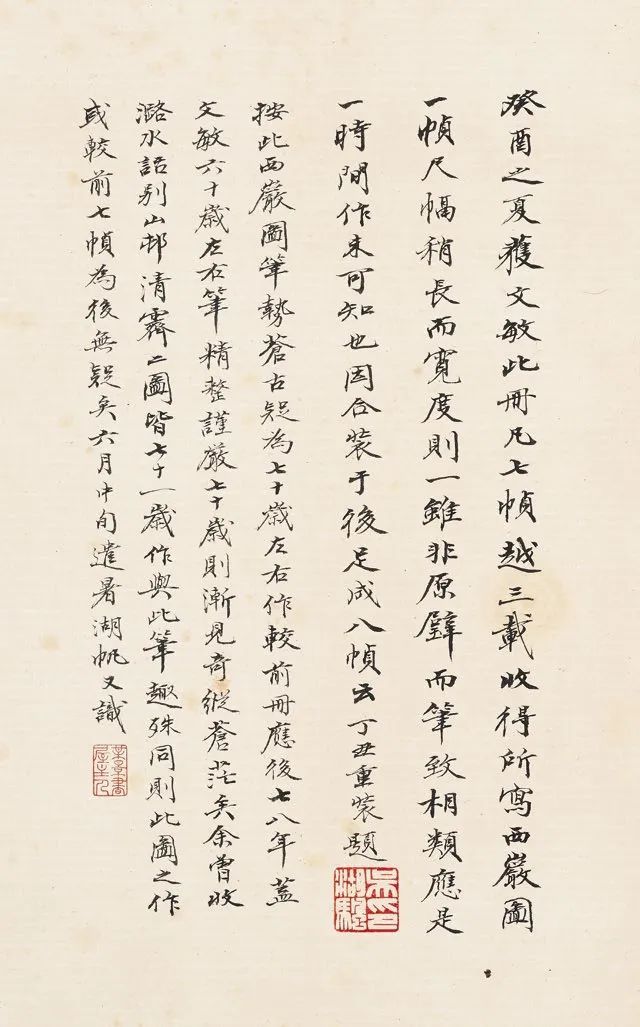 癸酉之夏獲文敏此冊凡七幀越三載收得所寫西巖圖
一幀尺幅稍長而寬度則一雖非原璧而筆致相類應是
一時間作未可知也因合裝于後足成八幀云丁丑重裝題
按此西巖圖筆勢蒼古疑為七十歲左右作較前冊應後七八年蓋
文敏六十歲左右筆精整謹嚴七十歲則漸見奇縱蒼茫矣余曾收
潞水話别山邨清霽二圖皆七十一歲作與此筆趣殊同則此圖之作
或較前七幀為後無疑矣六月中旬逭暑湖帆又識